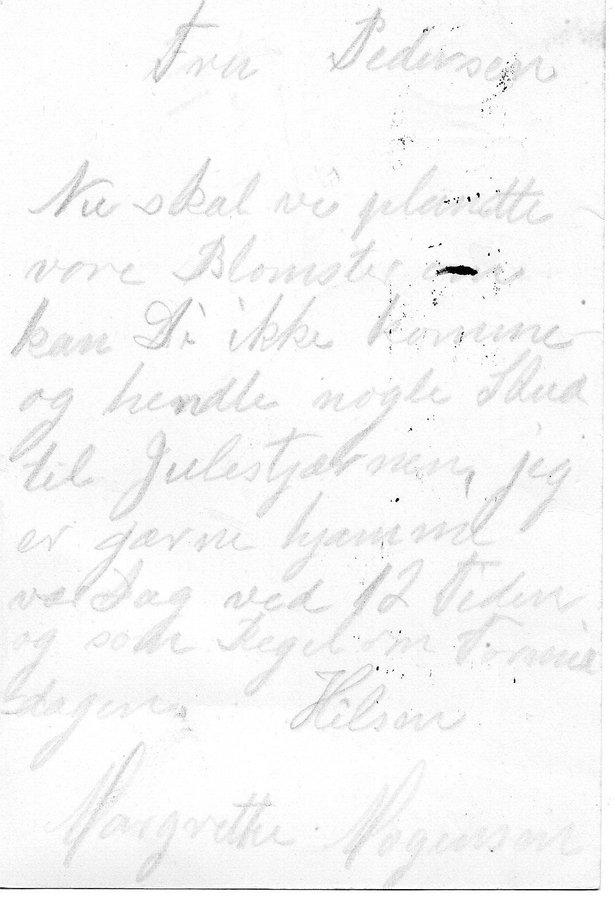 Fru Pedersen
Nu skal vi plandte
vore Blomster
kan Di ikke komme
og hendte nogle Skud
til Julestjærnen, jeg
er gærne hjamme
ved 12 Tiden
og som Regel om Formid
dagen. Hilsen
Margrethe Mogensen